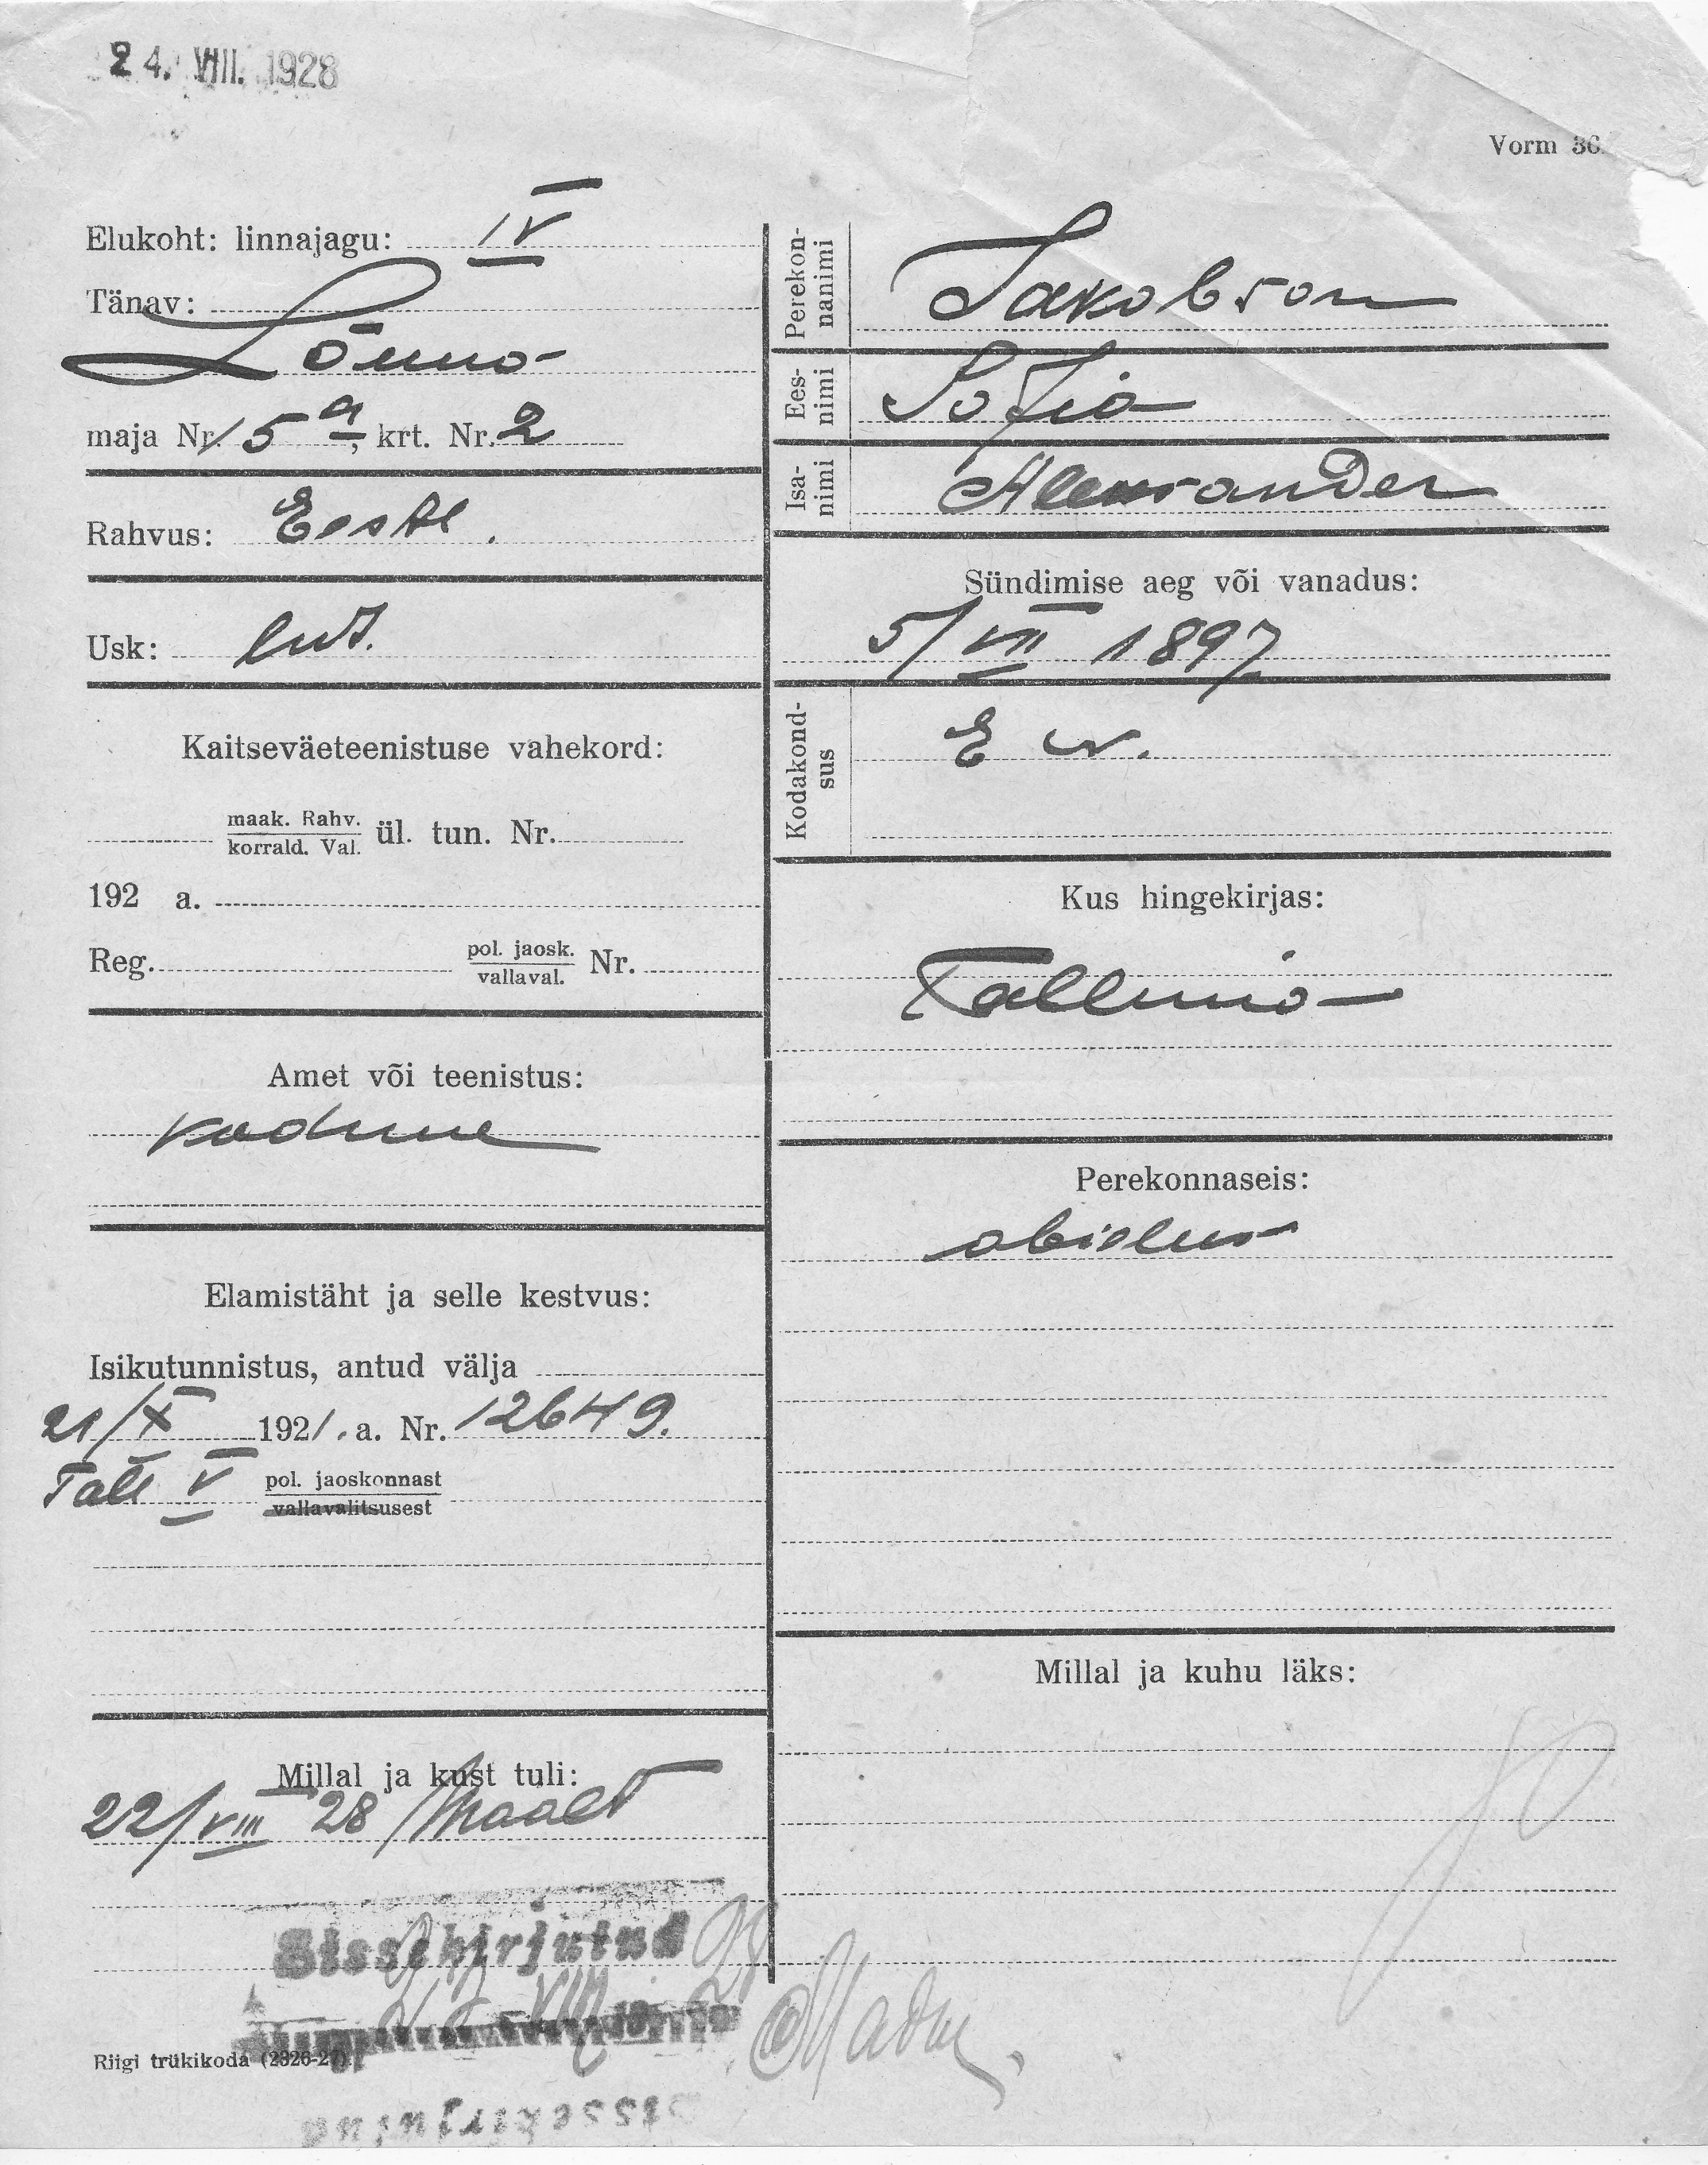 24. VIII. 1928
Vorm 36.
Elukoht: linnajagu: IV
Tänav:
Lõuna
maja Nr. 15 a, krt. Nr. 2
Rahvus: Eesti.
Usk: lut.
Kaitseväeteenistuse vahekord:
maak. Rahv.
korrald. Val. ül. tun. Nr.
192 a.
Reg. pol. jaosk.
vallaval. Nr.
Amet või teenistus:
kodune
Elamistäht ja selle kestvus:
Isikutunnistus, antud välja
21/X 1921. a. Nr. 12649.
Tall V pol. jaoskonnast
vallavalitsusest
Millal ja kust tuli:
22/VIII 28 Maalt
Sissekirjutud
Riigi trükikoda (2326-27)
Sissekirjutud
Perekon-
nanimi
Jakobson
Ees-
nimi
Sofia
Isa-
nimi
Alexsander
Sündimise aeg või vanadus:
5/VII 1897
Kodakond-
sus
E w.
Kus hingekirjas:
Tallinna
Perekonnaseis:
abielus
Millal ja kuhu läks: